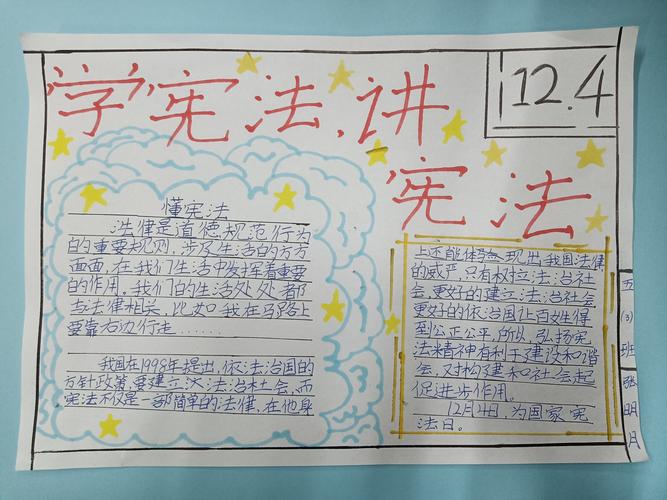 学宪法,讲
宪法
12.4
懂宪法
法律是道德规范行为
的重要规则,涉及生活的方方
面面,在我们生活中发挥着重要
的作用,我们的生活处处都
与法律相关,比如我在马路上
要靠右边行走……
我国在1998年提出,依法治国的
方针政策,要建立法治社会,而
宪法不仅是一部简单的法律,在他身
上还能体现出我国法律
的威严,只有树立法治社
会,更好的建立法治社会
更好的依治国让百姓得
到公正公平,所以,弘扬宪
法精神有利于建设和谐
会,对构建和社会起
促进步作用。
12月4日,为国家宪
法日。
五(3)班 张明月